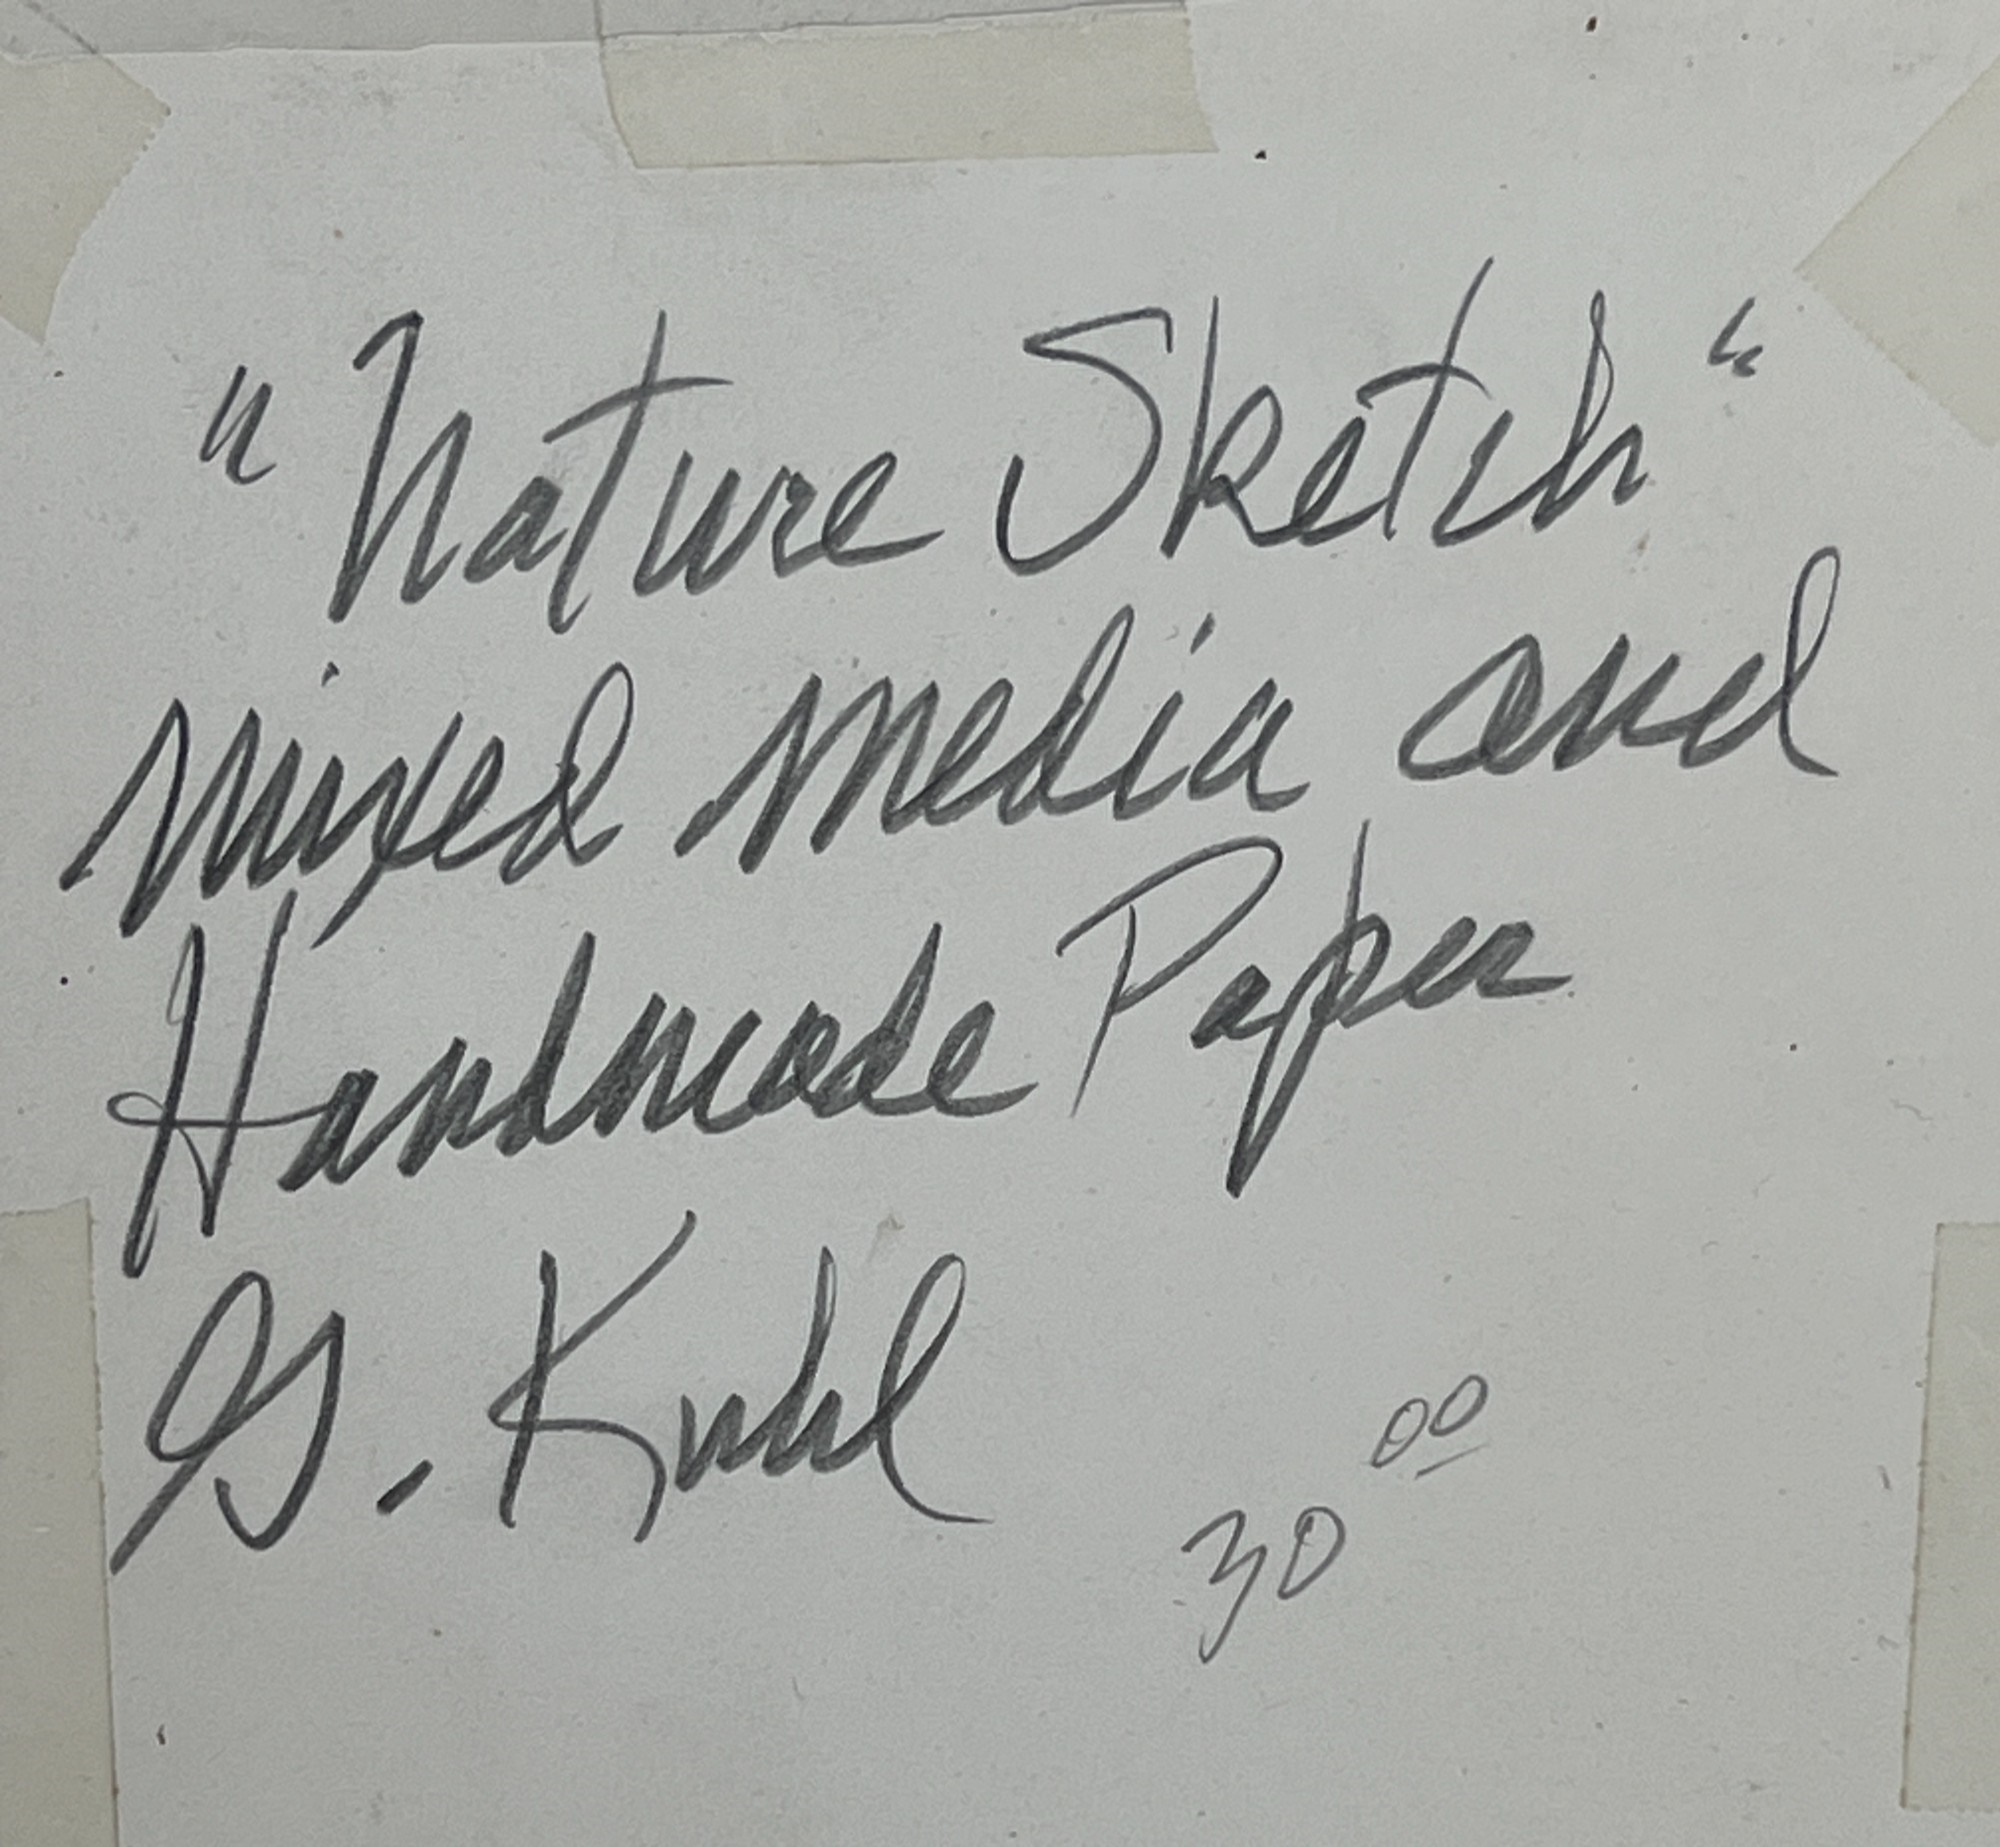 "Nature Sketch"
mixed media and
Handmade Paper
G. Kuhl
30 00